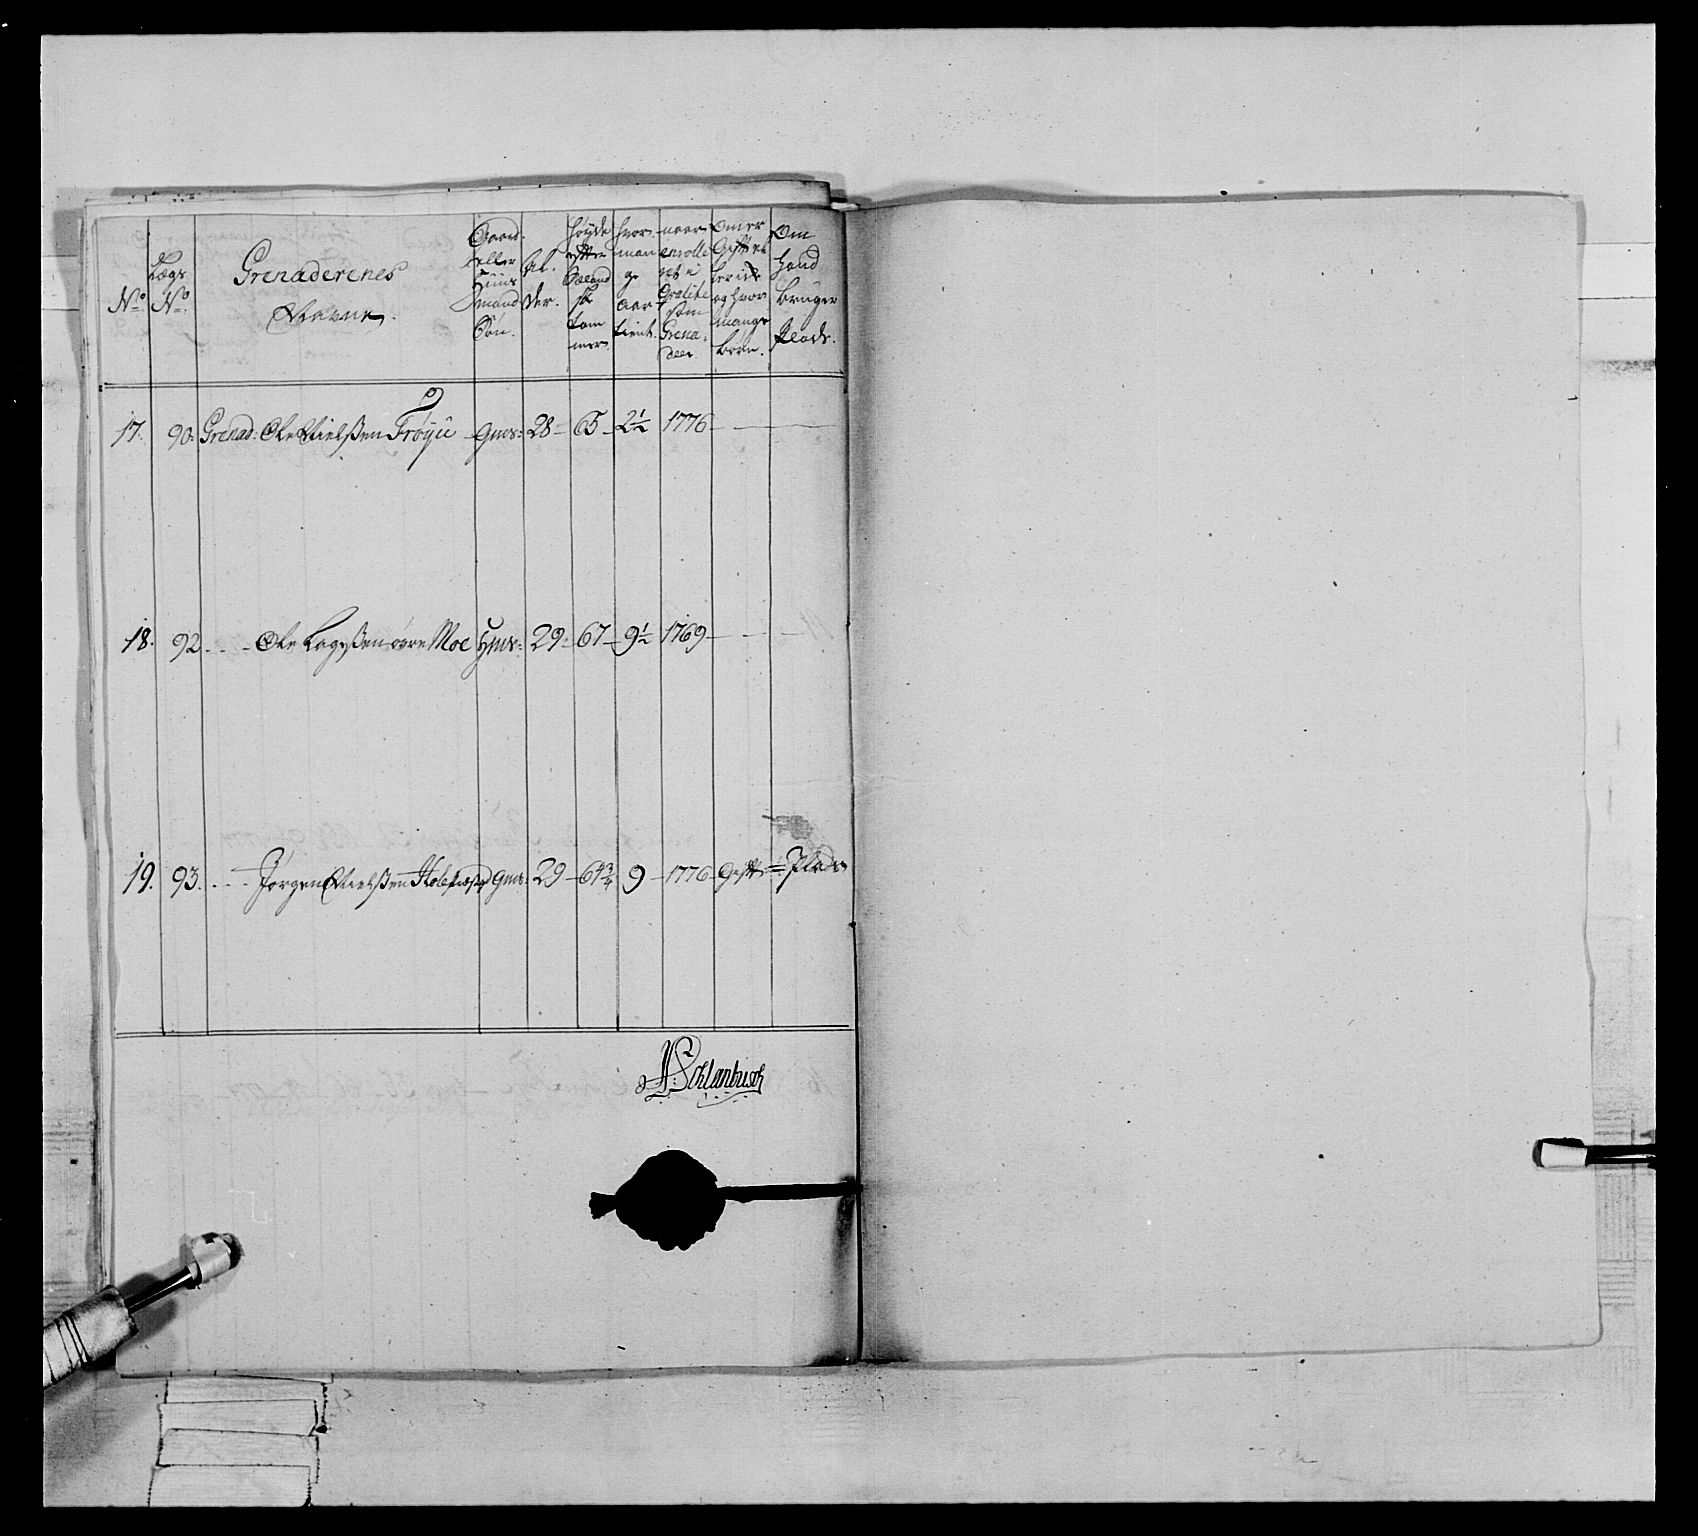 No.
Lægs No.
Grenaderenes Navne.
Gaard- eller Huusmand Søn.
Alder.
Høyde efter Siælandske tommer.
hvor mange Aar tient.
naar enrollert i Qvalitet som Grenadeer.
Om er Gift eller eij og hvor mange børn.
Om hand bruger Plads.
17. 90. Grenad: Ole Nielssen Frøyü gms: 28 - 65 - 2 1/2 1776
18. 92. Ole Lagessen øvre Moe Hms: 29 - 67 - 9 1/2 1769
19. 93. Jørgen Nielssen gms: 29 - 64 3/4 9 - 1776 Gift Plads
Schlanbusch